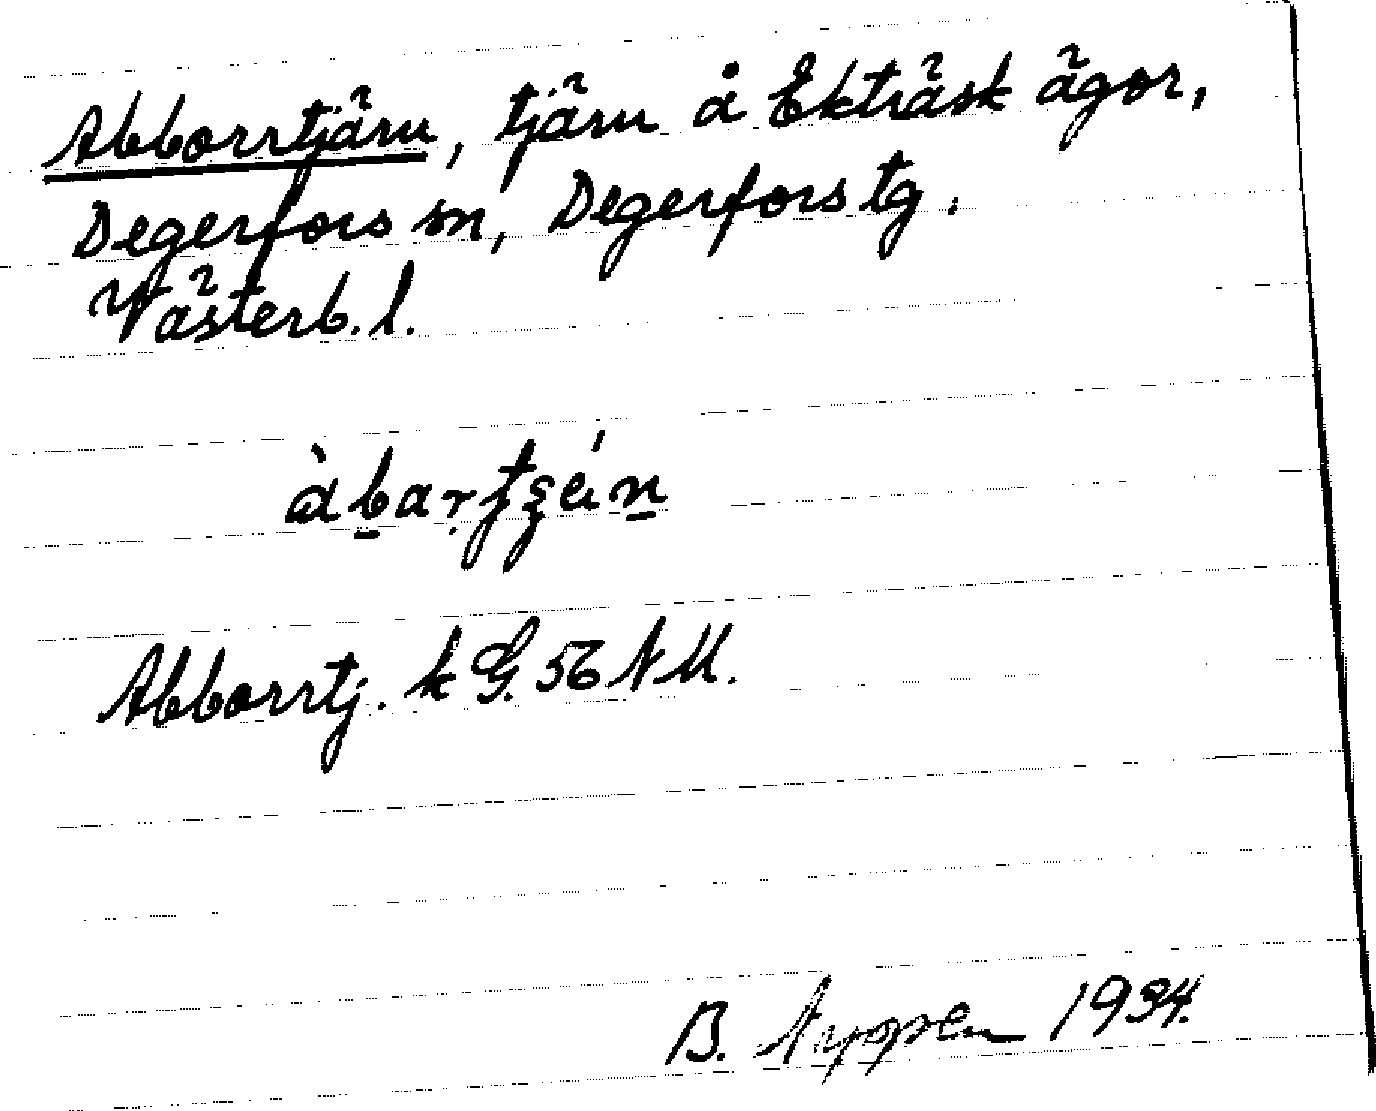 Abborrtjärn, tjärn å Ekträsk ägor,
Degerfors sn, Degerfors tg.
Västerb. l.
Abborrtj. k G. 56 NU.
B. 1934.